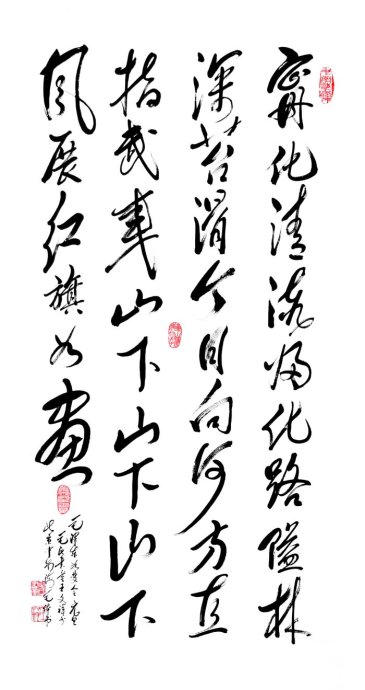 宁化清流归化路隘林
深苔滑今日向何方直
指武夷山下山下山下
风展红旗如画
毛泽东